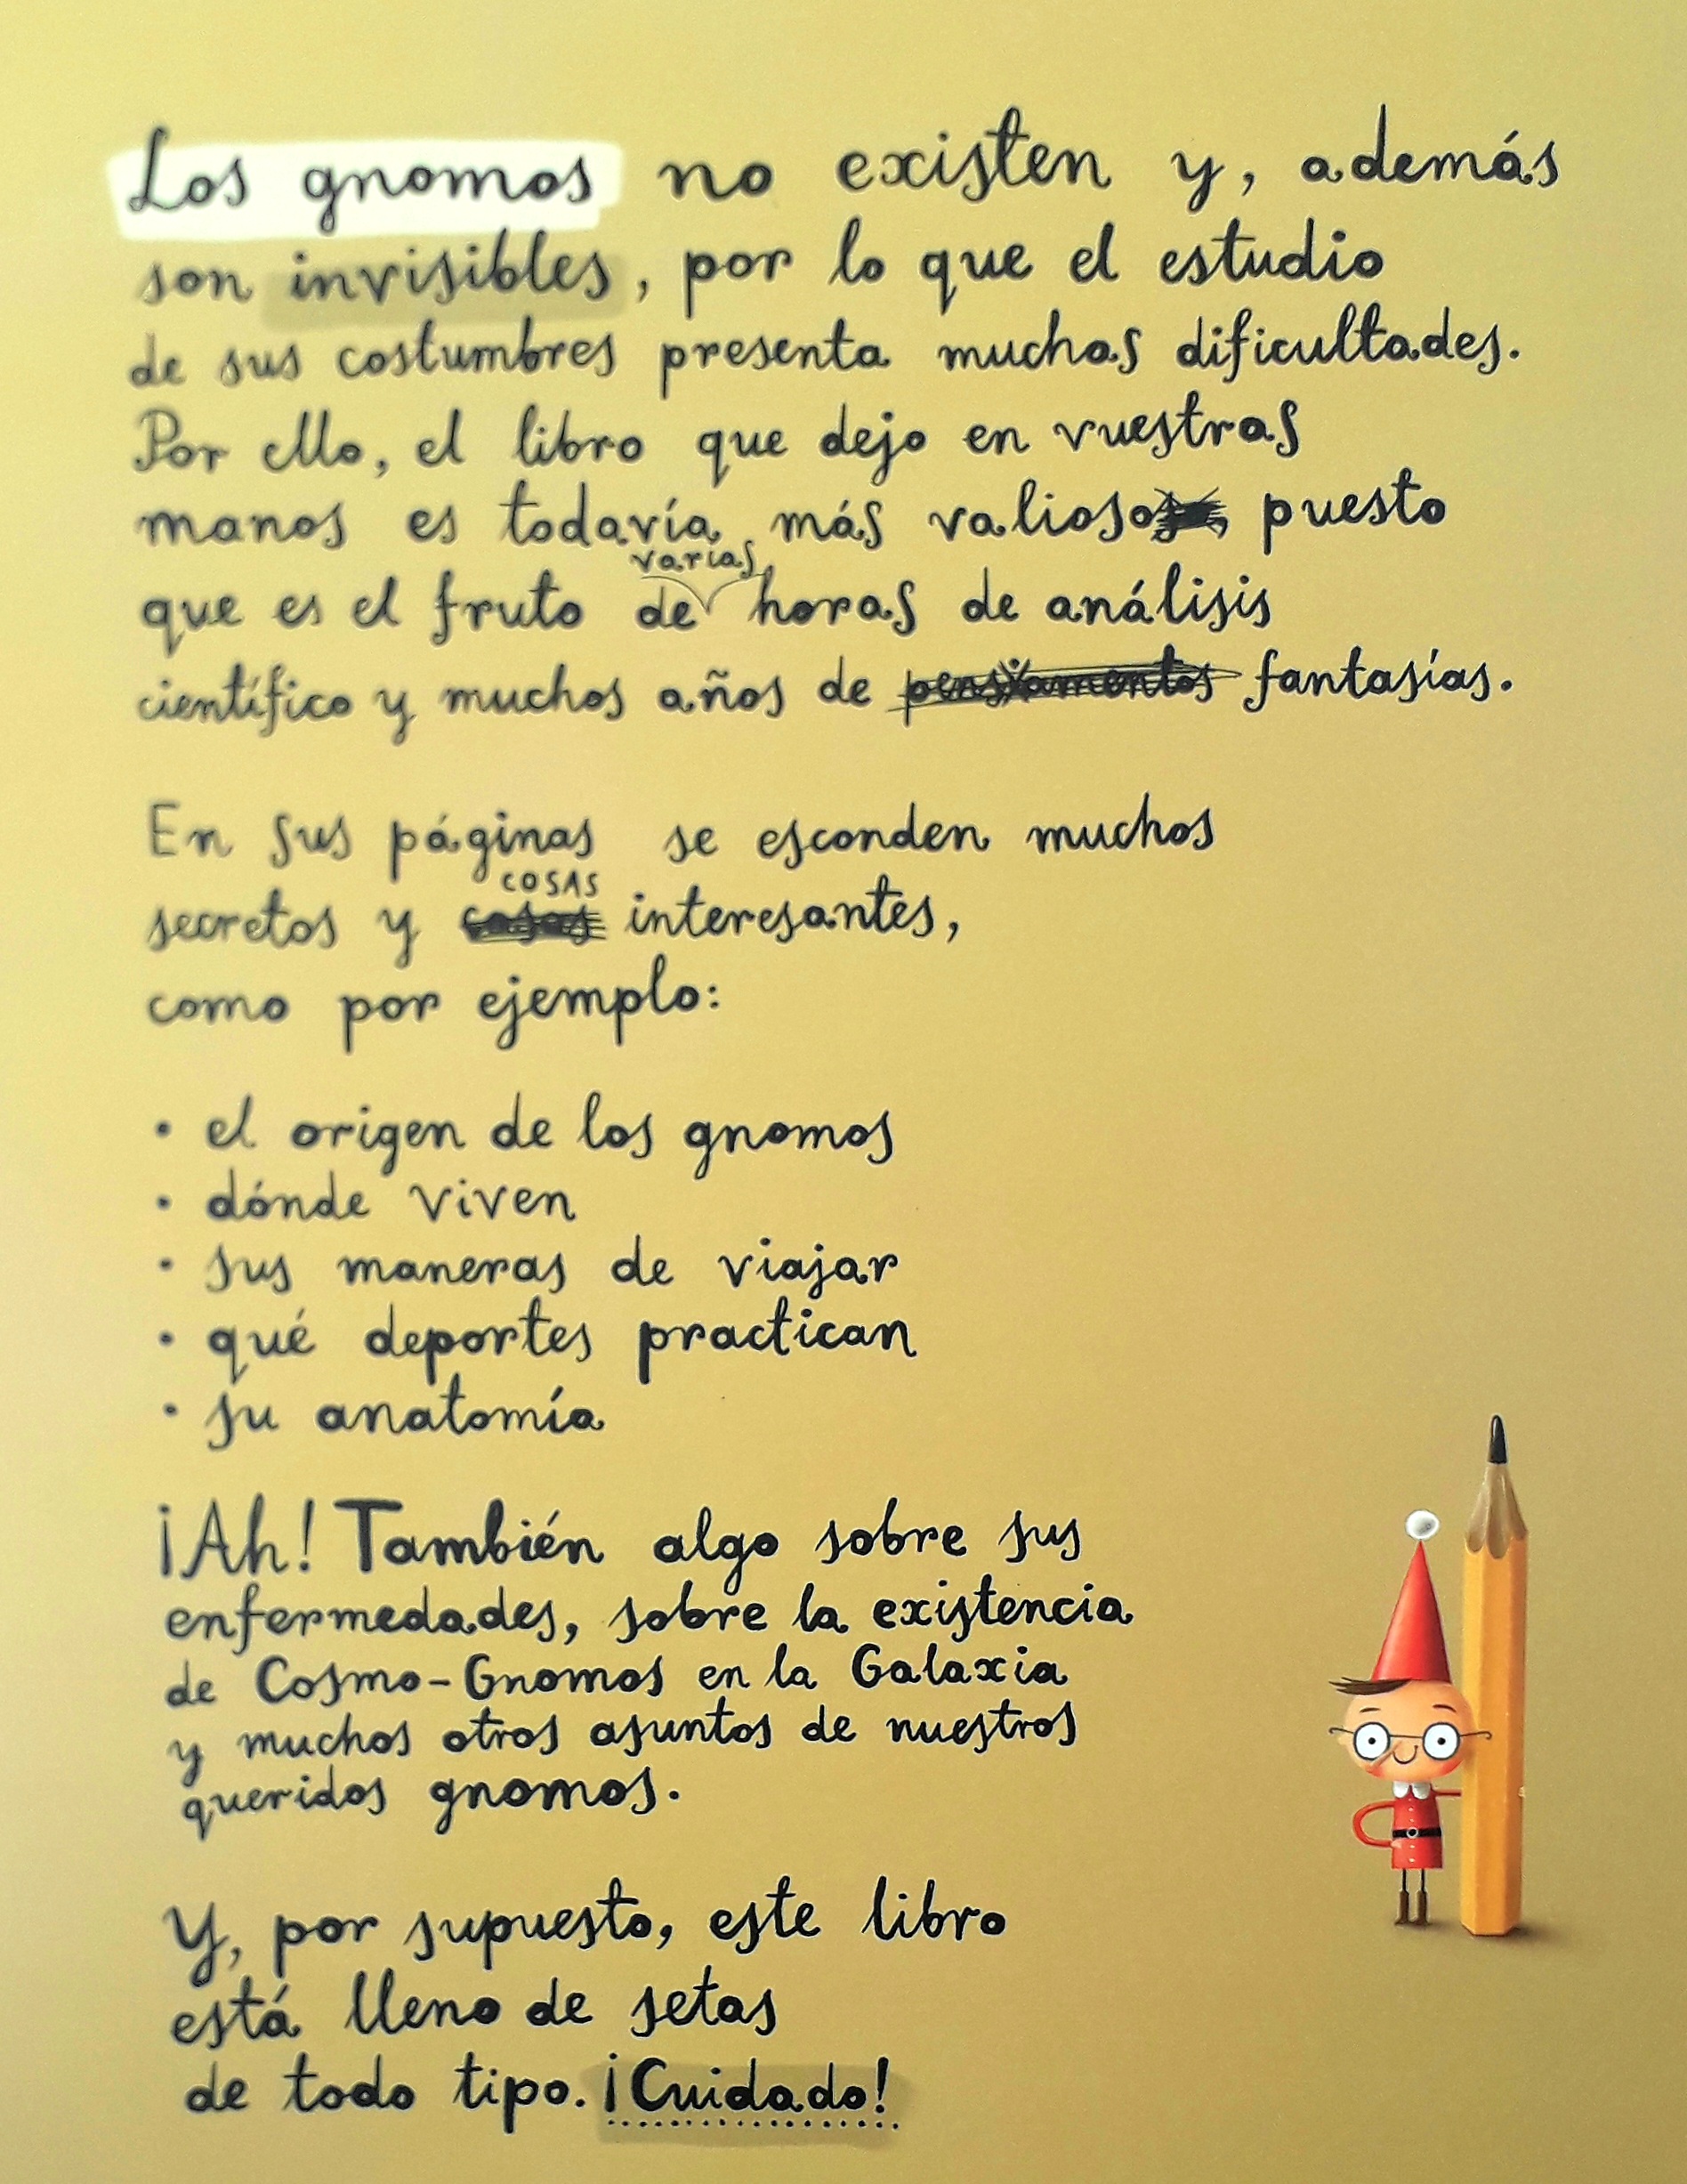 Los gnomos no existen y, además
son invisibles, por lo que el estudio
de sus costumbres presenta muchas dificultades.
Por ello, el libro que dejo en vuestras
manos es todavía más valioso, puesto
varias
que es el fruto de horas de análisis
científico y muchos años de pensiamentos fantasías.
En sus páginas se esconden muchos
COSAS
secretos y cosas interesantes,
como por ejemplo:
• el origen de los gnomos
• dónde viven
• sus maneras de viajar
• qué deportes practican
• su anatomía
¡Ah! También algo sobre sus
enfermedades, sobre la existencia
de Cosmo-Gnomos en la Galaxia
y muchos otros asuntos de nuestros
queridos gnomos.
Y, por supuesto, este libro
está lleno de setas
de todo tipo. ¡Cuidado!